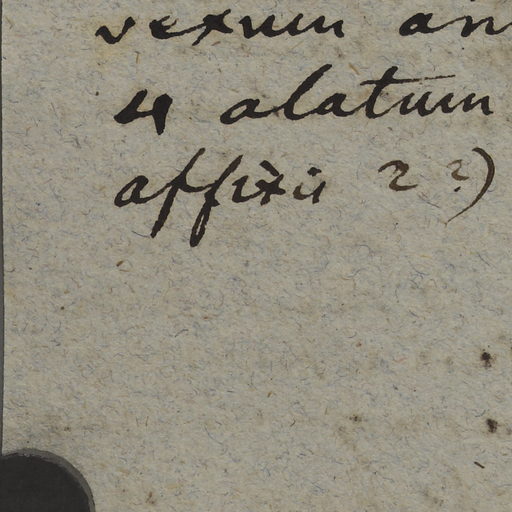 vexum an
4 alatum
affixis 2 ?)